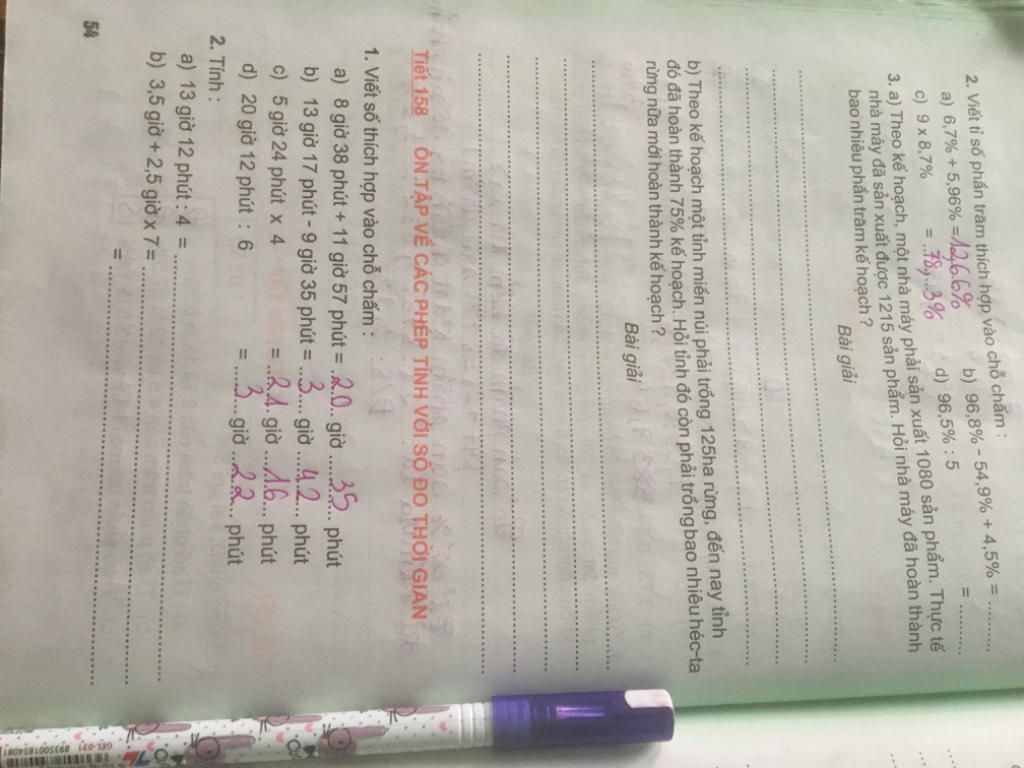 2. Viết tỉ số phần trăm thích hợp vào chỗ chấm :
a) 6,7% + 5,96% = 12,66% b) 96,8% - 54,9% + 4,5% = ..........
c) 9 x 8,7% = ..78,..3% d) 96,5% : 5 = ..........
3. a) Theo kế hoạch, một nhà máy phải sản xuất 1080 sản phẩm. Thực tế
nhà máy đã sản xuất được 1215 sản phẩm. Hỏi nhà máy đã hoàn thành
bao nhiêu phần trăm kế hoạch ?
Bài giải
b) Theo kế hoạch một tỉnh miền núi phải trồng 125ha rừng, đến nay tỉnh
đó đã hoàn thành 75% kế hoạch. Hỏi tỉnh đó còn phải trồng bao nhiêu héc-ta
rừng nữa mới hoàn thành kế hoạch ?
Bài giải
Tiết 158 ÔN TẬP VỀ CÁC PHÉP TÍNH VỚI SỐ ĐO THỜI GIAN
1. Viết số thích hợp vào chỗ chấm :
a) 8 giờ 38 phút + 11 giờ 57 phút = ..20.. giờ .....35.... phút
b) 13 giờ 17 phút - 9 giờ 35 phút = ...3... giờ ....42.... phút
c) 5 giờ 24 phút x 4 = ..21. giờ ...16... phút
d) 20 giờ 12 phút : 6 = ....3... giờ ..22... phút
2. Tính :
a) 13 giờ 12 phút : 4 = ..........
b) 3,5 giờ + 2,5 giờ x 7 = ..........
= ..........
54
GEL-031
8935001854081